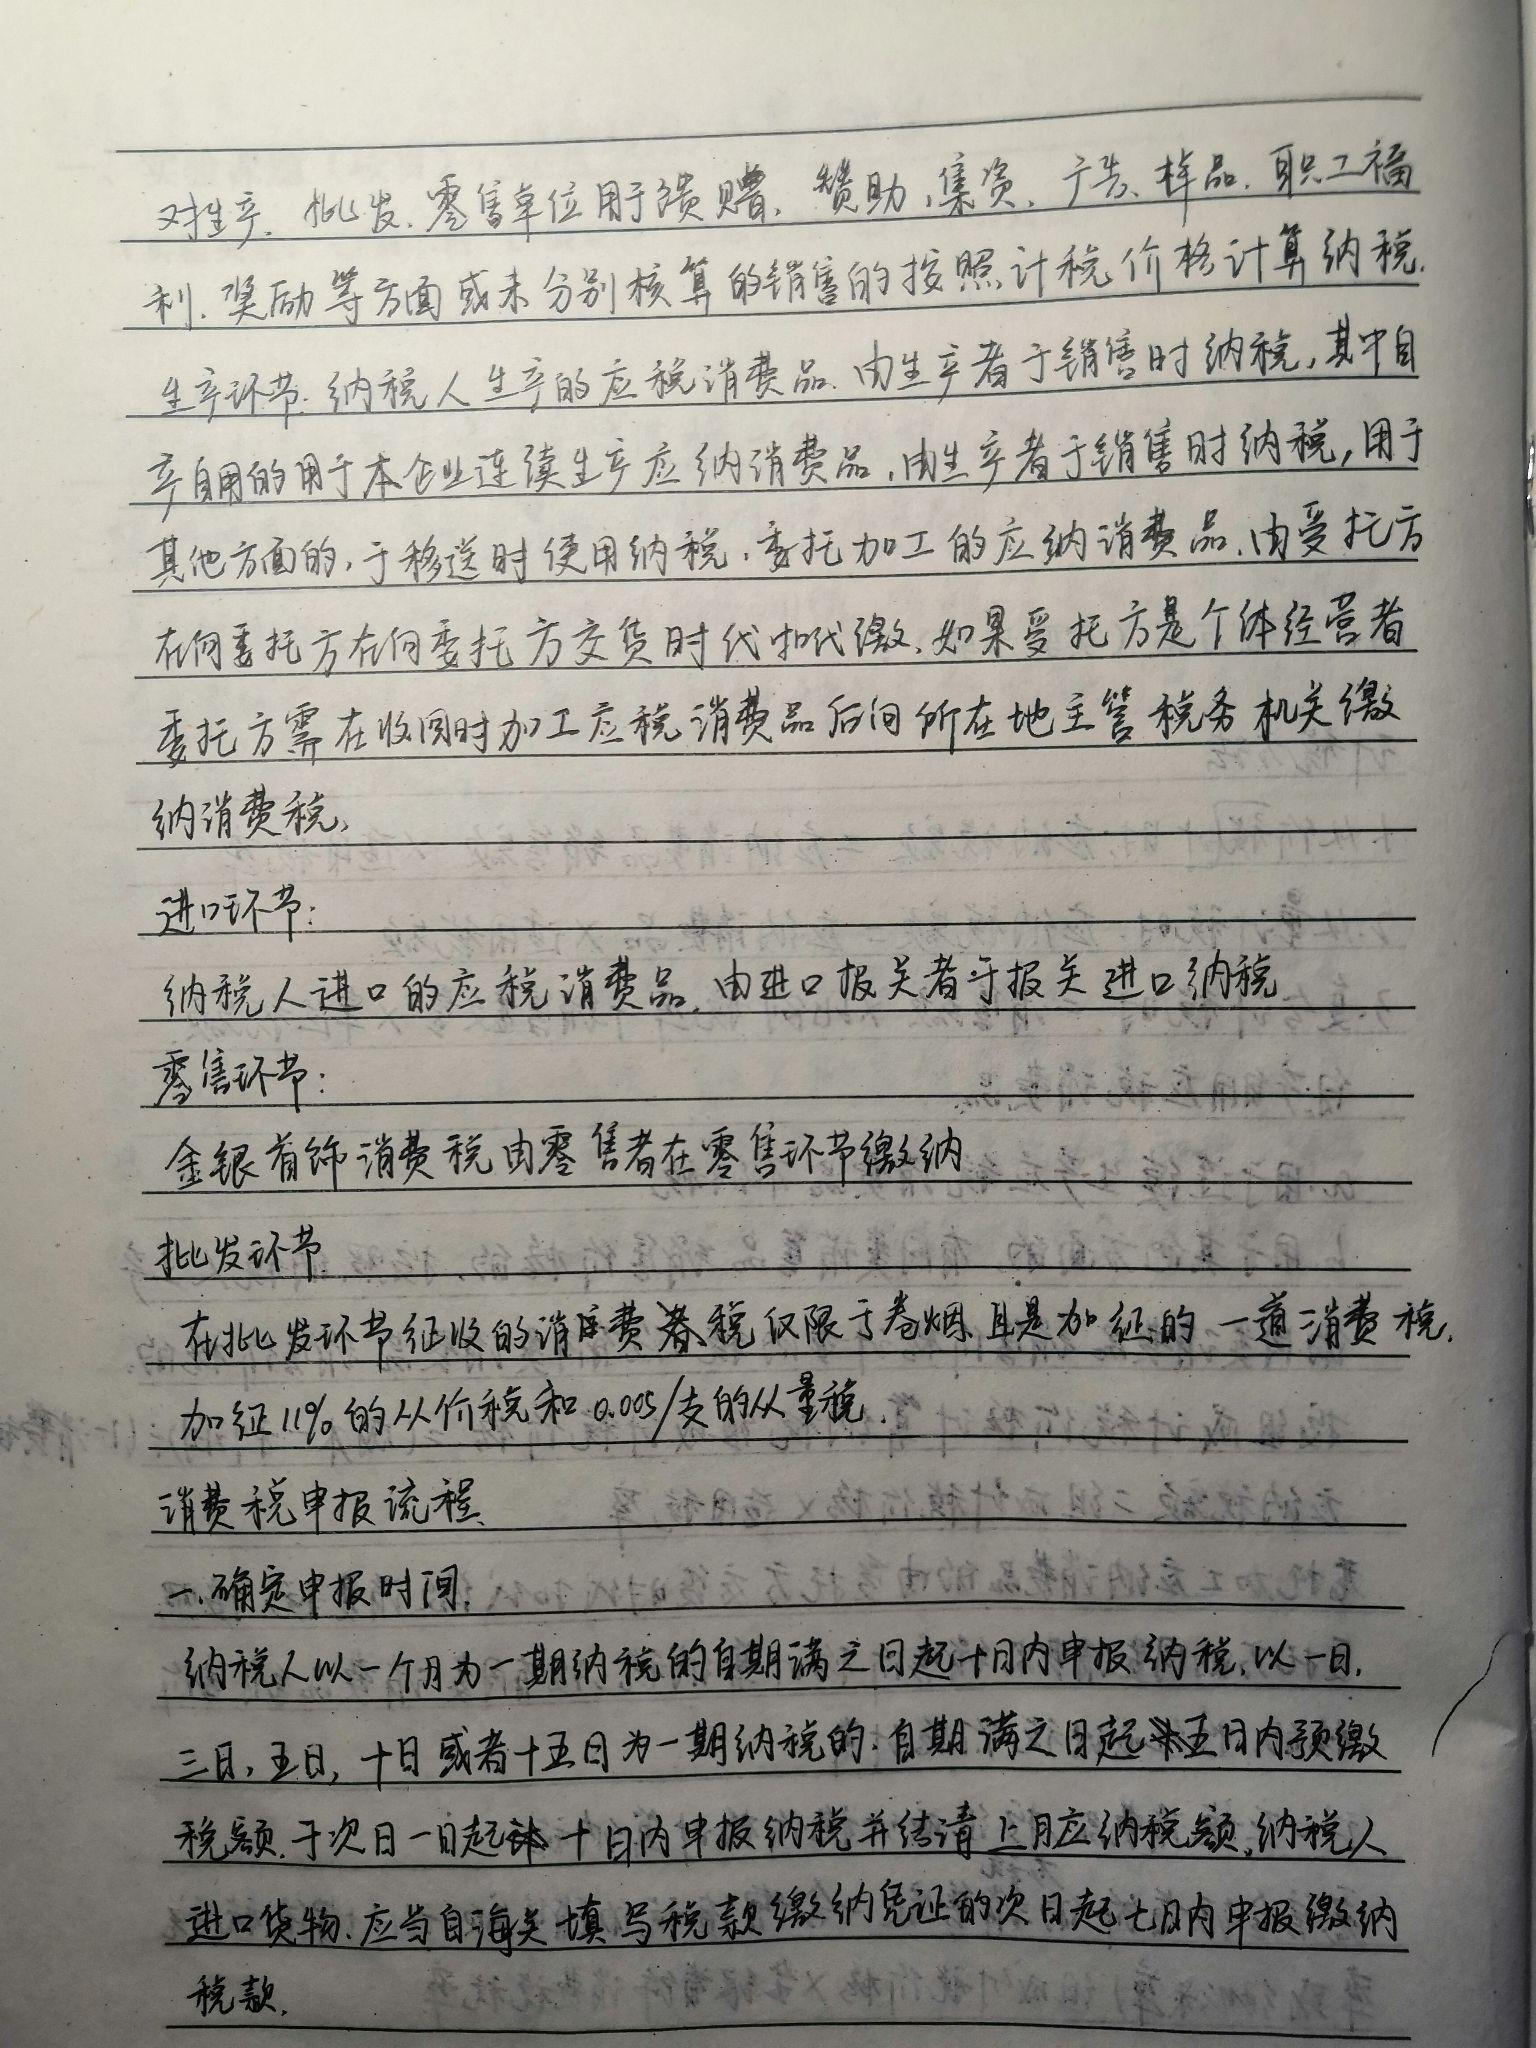 对生产、批发、零售单位用于馈赠、赞助、集资、广告、样品、职工福
利、奖励等方面或未分别核算的销售的按照计税价格计算纳税.
生产环节:纳税人生产的应税消费品.由生产者于销售时纳税,其中自
产自用的用于本企业连续生产应纳消费品,由生产者于销售时纳税,用于
其他方面的,于移送时使用纳税.委托加工的应纳消费品.由受托方
在向委托方在向委托方交货时代扣代缴.如果受托方是个体经营者
委托方需在收回时加工应税消费品后向所在地主管税务机关缴
纳消费税,
进口环节:
纳税人进口的应税消费品.由进口报关者于报关进口纳税
零售环节:
金银首饰消费税由零售者在零售环节缴纳
批发环节
在批发环节征收的消费税仅限于卷烟且是加征的一道消费税.
加征11%的从价税和0.005/支的从量税.
消费税申报流程.
一.确定申报时间.
纳税人以一个月为一期纳税的自期满之日起十日内申报纳税.以一日.
三日,五日,十日或者十五日为一期纳税的.自期满之日起五日内预缴
税额.于次日一日起十日内申报纳税并结清上月应纳税额.纳税人
进口货物.应当自海关填写税款缴纳凭证的次日起七日内申报缴纳
税款.